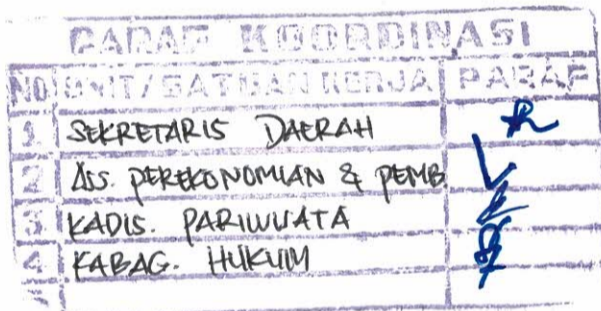 PARAF KOORDINASI
NO UNIT/SATUAN KERJA PARAF
1 SEKRETARIS DAERAH
2 ASS. PEREKONOMIAN & PEMB
3 KADIS. PARIWISATA
4 KABAG. HUKUM